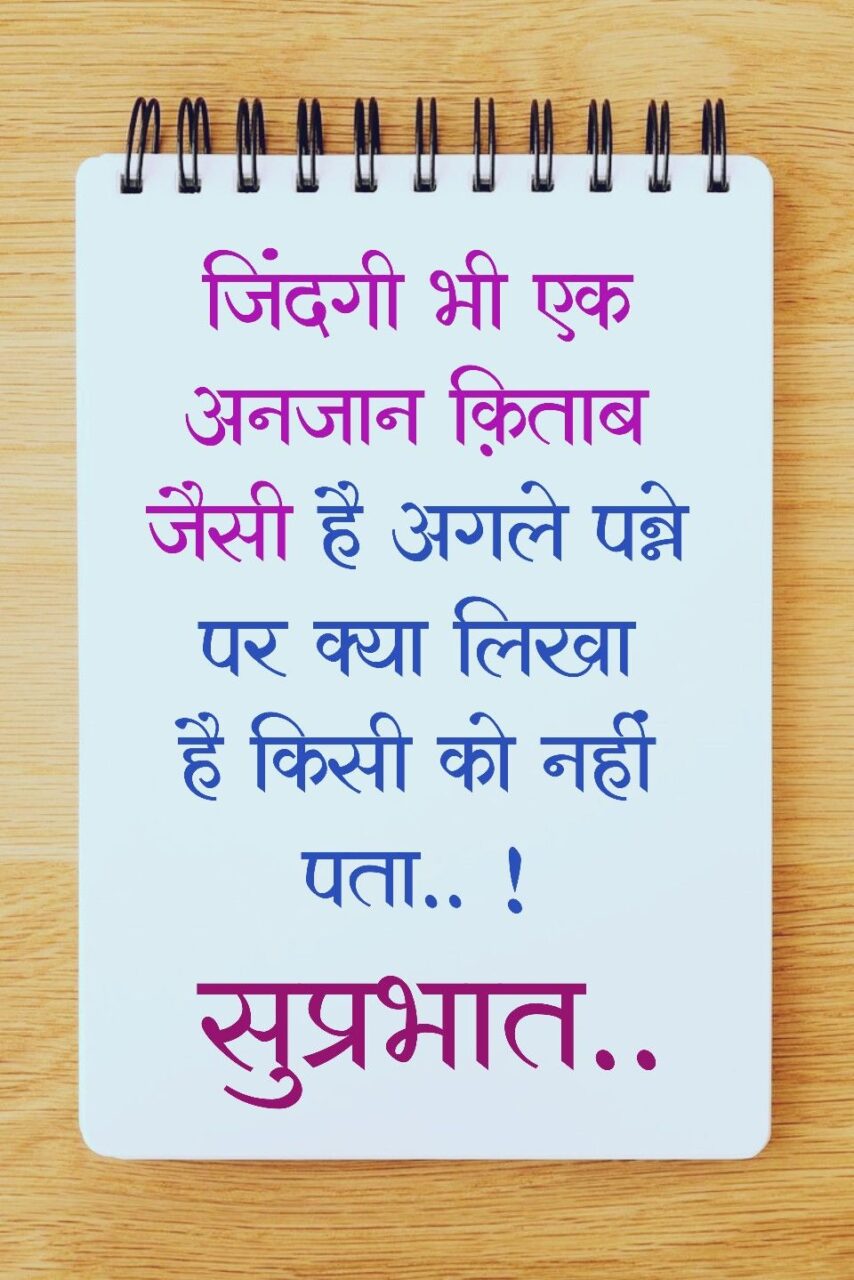 जिंदगी भी एक
अनजान क़िताब
जैसी है अगले पन्ने
पर क्या लिखा
है किसी को नहीं
पता.. !
सुप्रभात..